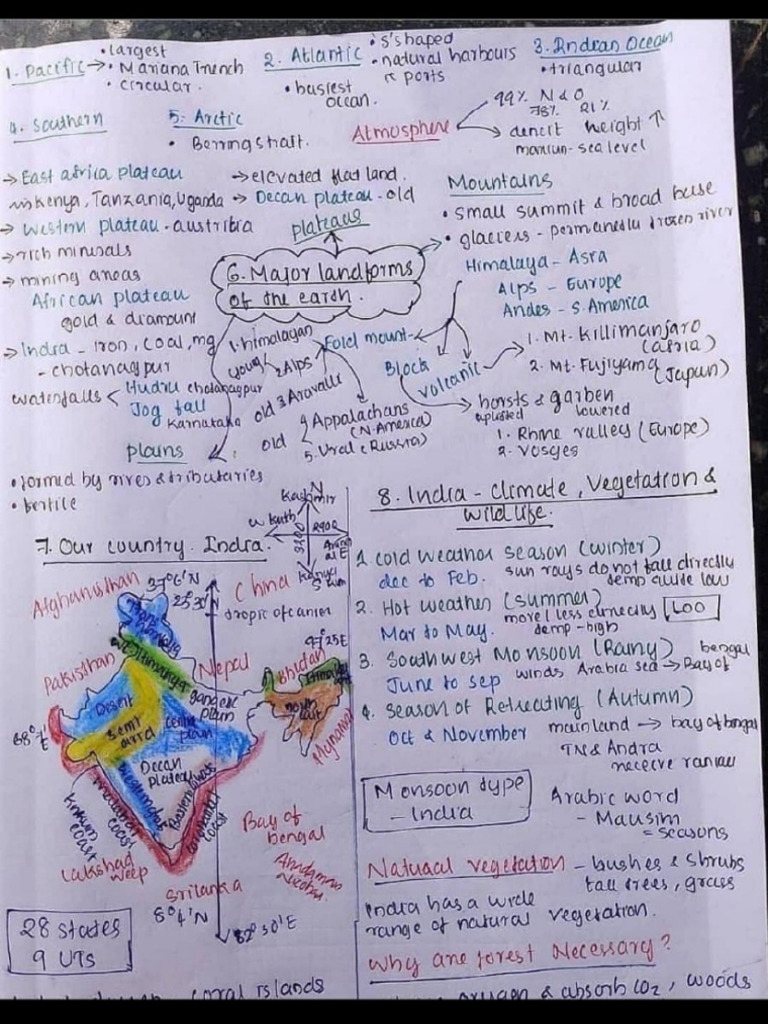 1. Pacific → • largest
• Mariana Trench
• circular.
2. Atlantic • S'shaped
• natural harbours
& ports
• busiest
ocean.
3. Indian Ocean
• triangular
4. Southern
5. Arctic
• Berring strait.
Atmosphere
99% N & O
78% 21%
→ density height ↑
maxium - sea level
→ East africa plateau
Kenya, Tanzania, Uganda
→ Western plateau -
→ rich minerals
→ mining areas
African plateau
gold & diamond
→ India - iron, coal, mg
- chotanagpur
waterfalls < Hudru chotanagpur
Jog fall
Karnataka
→ elevated flat land.
→ Decan plateau - old
plateaus
6. Major landforms
of the earth.
Mountains
• small summit & broad base
• glaciers - permanently frozen river
Himalaya - Asia
Alps - Europe
Andes - S. America
Fold mount-
1. himalayan
young 2 Alps
old 3 Aravalli
old 4 Appalachans
(N. America)
5. Ural (Russia)
Block
Volcanic
1. Mt. Killimanjaro
(africa)
2. Mt. Fujiyama
(Japan)
horsts & garben
uplifted lowered
1. Rhine valley (Europe)
2. Vosges
plains
• formed by rives & tributaries
• fertile
7. Our country India.
N
Kashmir
W Kutch
3200
2900
E
S
Afghanisthan
37°6'N
23°30'N
China
tropic of cancer
97°25E
Pakisthan
Nepal
Bhutan
Mynamar
68°7'E
Desert
Semi
arid
gangetic
plain
north
east
Decan
plateau
Bay of
bengal
Lakshad
weep
Srilanka
8°4'N
82°30'E
28 states
9 UTs
coral islands
8. India - climate, Vegetation &
wildlife.
1. Cold weather season (winter)
dec to Feb. sun rays do not fall directly
temp quide low
2. Hot weather (summer)
more/less directly LOO
Mar to May. temp - high
3. Southwest Monsoon (Rainy) bengal
June to sep winds Arabia sea → Bay of
4. Season of Retreating (Autumn)
Oct & November mainland → bay of bengal
TN & Andra
receive
Monsoon type
- India
Arabic word
- Mausim
= seasons
Natuaal vegetation - bushes & shrubs
tall trees, grass
India has a wide
range of natural vegetation.
Why are forest Necessary?
oxygen & absorb CO2, woods